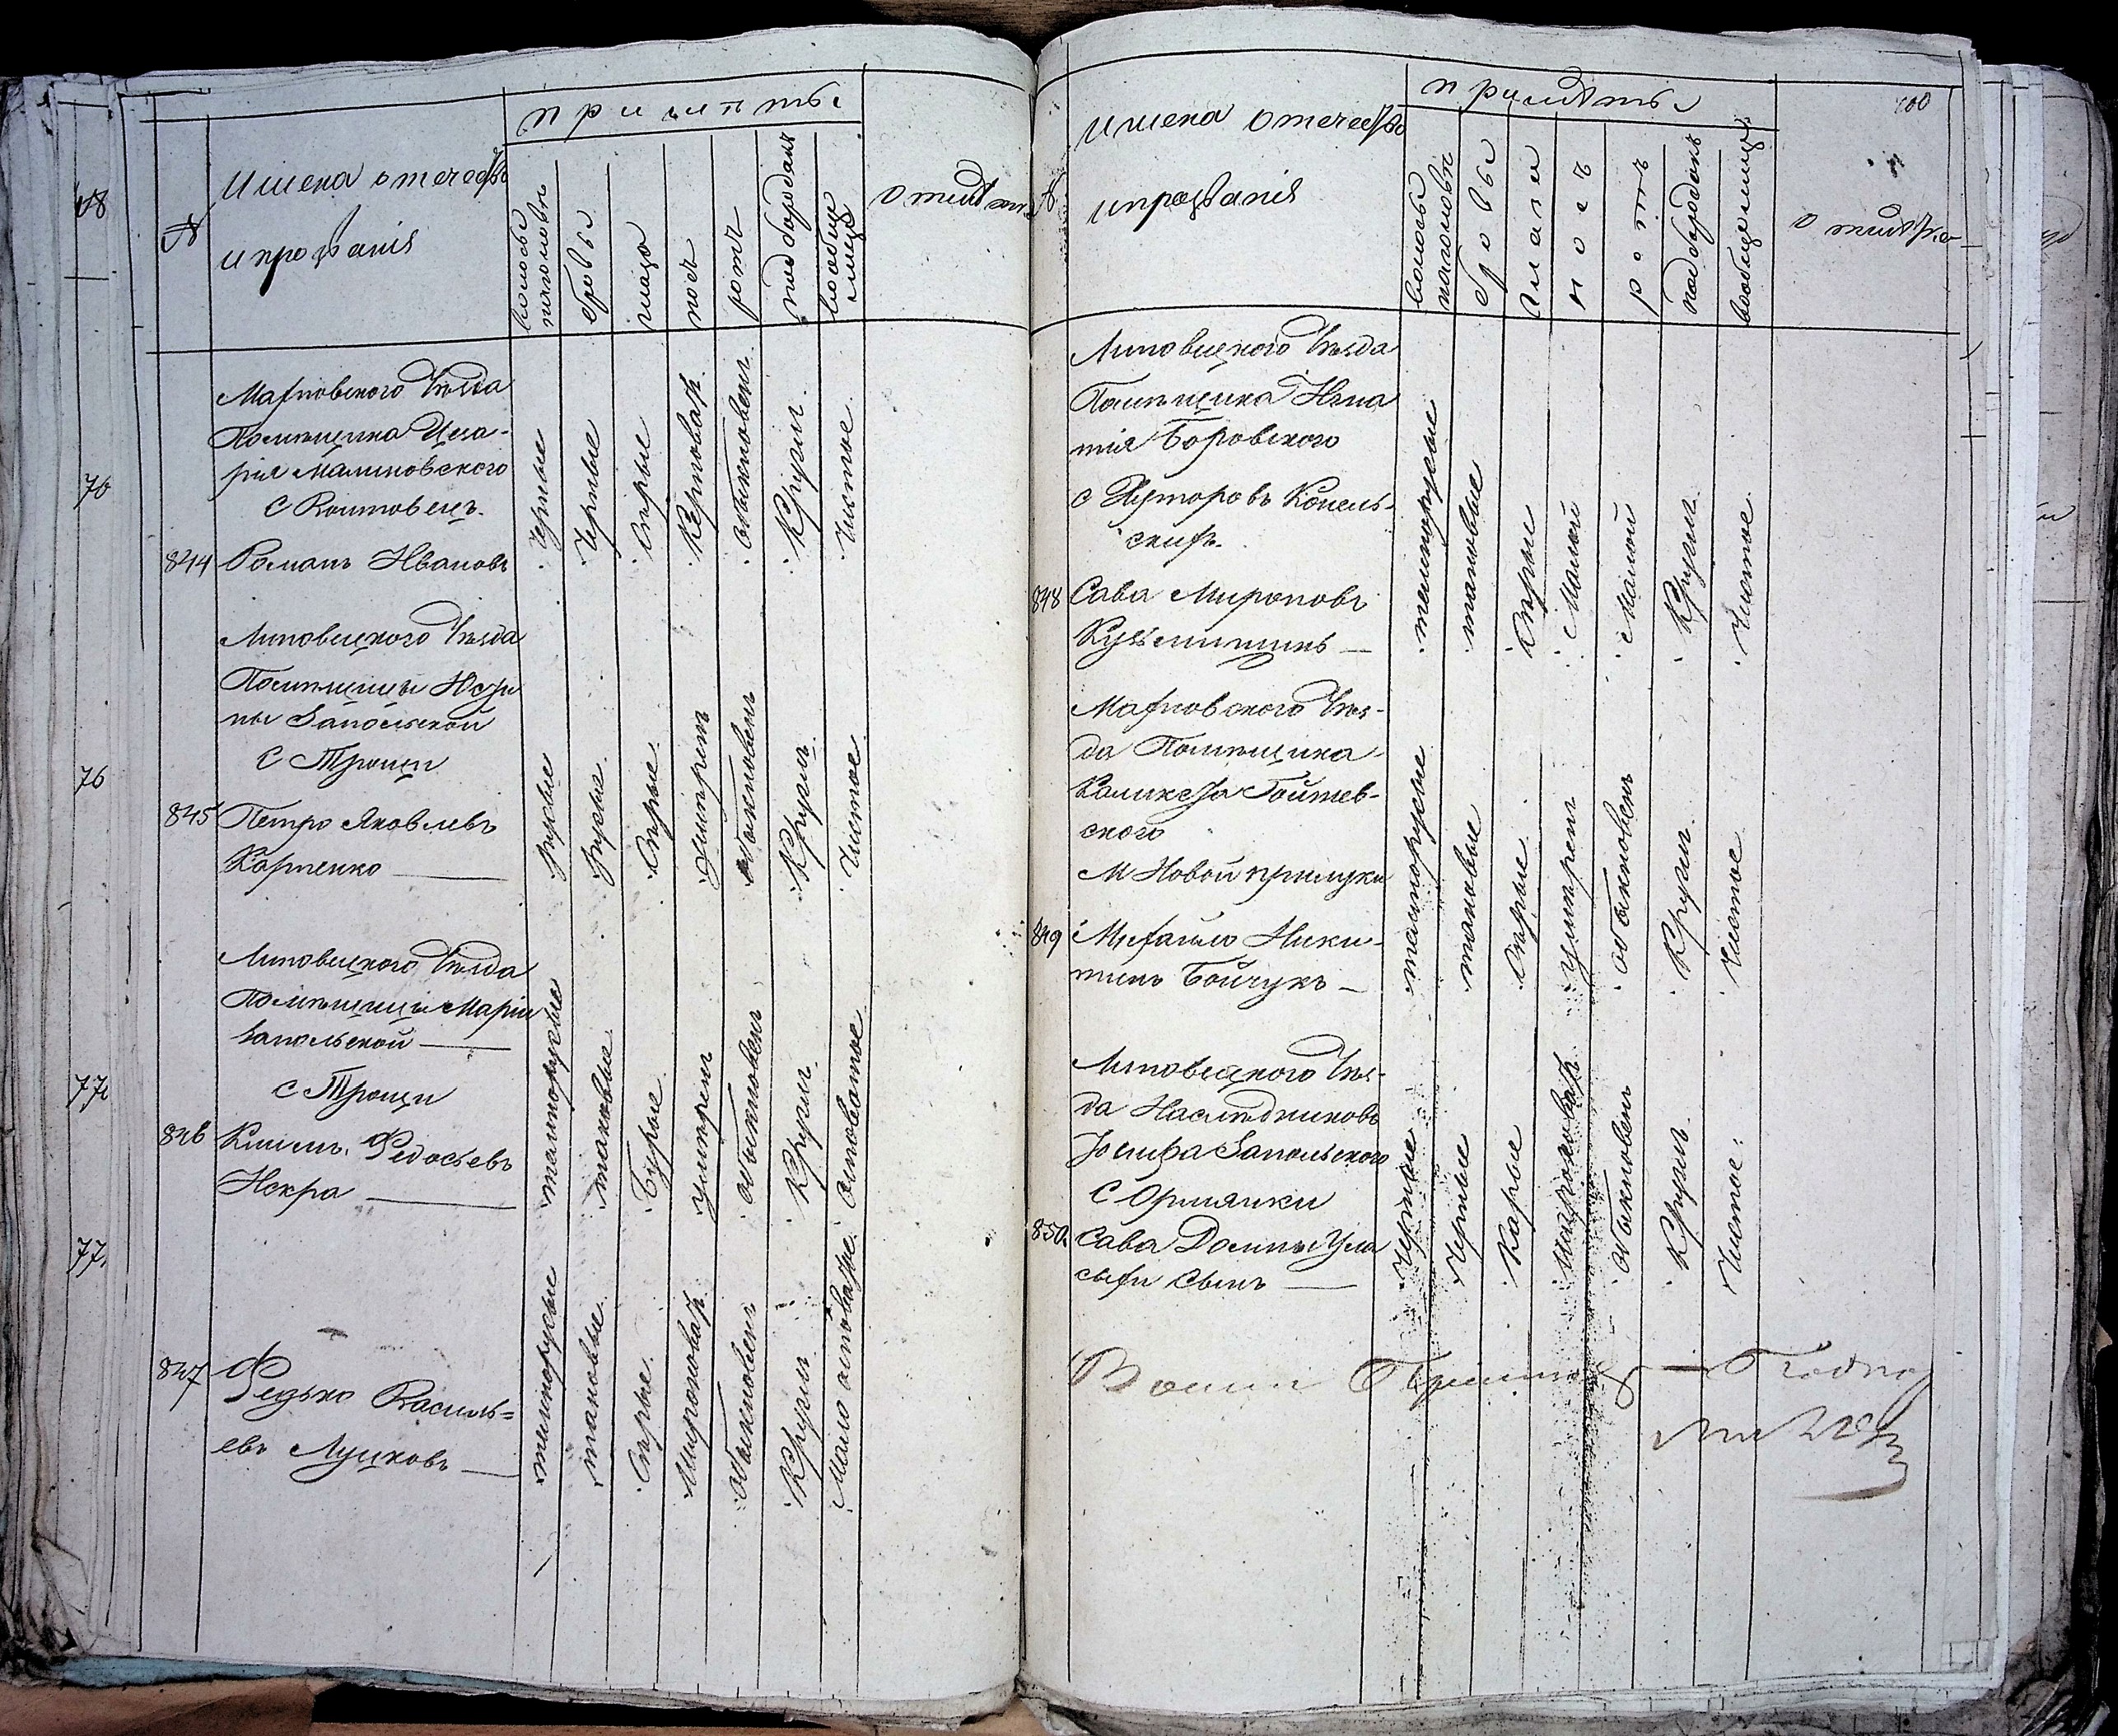 68
70
76
77
77.
№
имена отечества
и прозванія
примѣты
волосы
на головѣ
бровы
глаза
носъ
ротъ
подбородокъ
вообще
лице
отмѣтки
Махновского Уѣзда
Помѣщика Цеза-
рія Малиновского
С Ролитовецъ.
844 Романъ Ивановъ
Черные
Черные
Сѣрые
Кирповат.
обыкновен.
Кругл.
Чистое.
Липовецкого Уѣзда
Помѣщицы Юсти
ны Запольской
С Трощи
845 Петро Яковлевъ
Карпенко
Русые
Русые.
Сѣрые.
умѣрен
обыкновен
Кругл.
Чистое
Липовецкого Уѣзда
Помѣщицы Маріи
Запольской
С Трощи
846 Климъ Федосѣевъ
Искра
темнорусые
таковые
Бурые
умѣрен
обыкновен
Кругл.
Осповатое
847 Федько Василь=
евъ Луцковъ
темнорусые
таковые
Сѣрые.
Широковат.
обыкновен
Кругл.
Мало осповатое.
№
имена отечества
и прозванія
примѣты
волосы
на головѣ
бровы
глаза
носъ
ротъ
подбородокъ
вообще лице
отмѣтка
100
Липовецкого Уѣзда
Помѣщика Игна
тія Боровского
с Хуторовъ Конель-
скихъ.
848 Сава Мироновъ
Кузьмишинъ
темнорусые
таковые
Сѣрые
Малой
Малой
Кругл.
Чистое.
Махновского Уѣз-
да Помѣщика
Каликста Гоитев-
ского
М Новой прилуки
849 Михайло Ники-
тинъ Бойчукъ
темнорусые
таковые
Сѣрые
умѣрен
обыкновен
Кругл.
Чистое
Липовецкого Уѣз-
да Наслѣдниковъ
Іосифа Запольского
С Ормянки
850. Сава Домны Ула
сыхи Сынъ
Черные
Черные
Карые
Широковат.
обыкновен
Кругл.
Чистое.